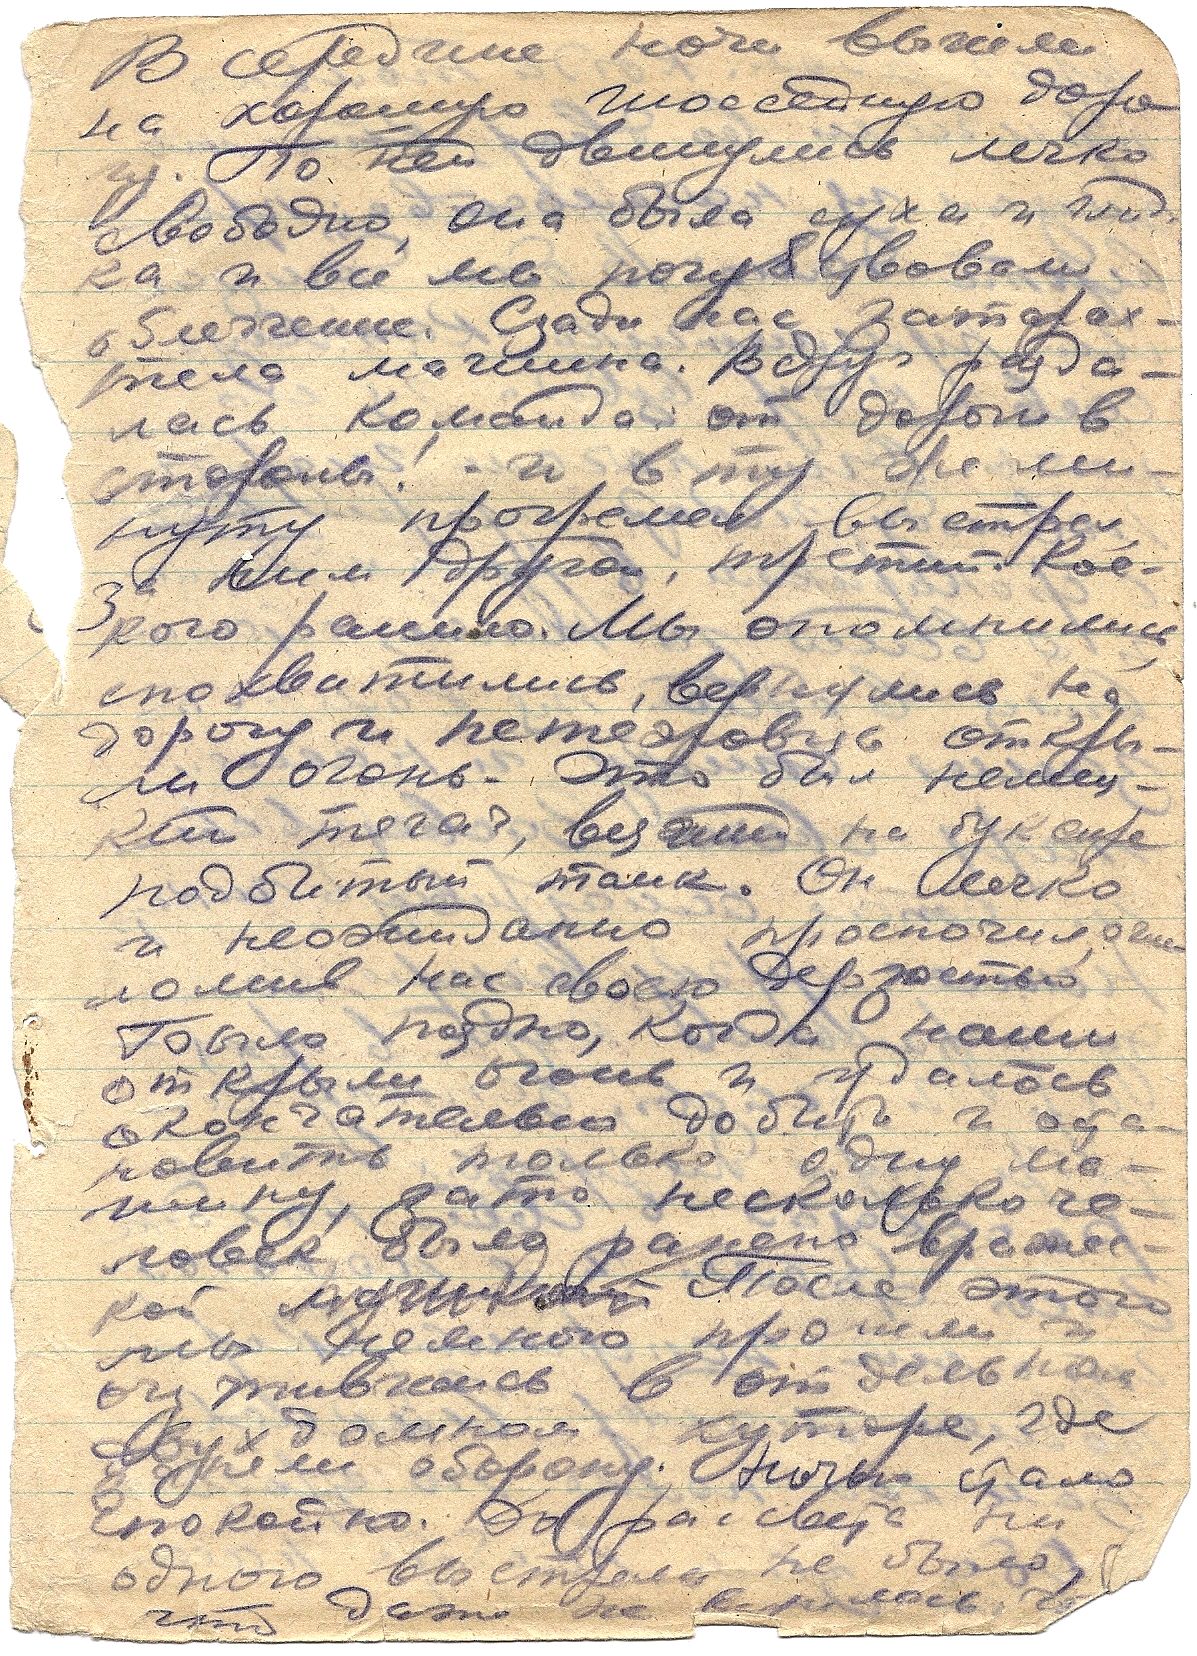 В середине ночи вышли
на хорошую шоссейную доро
гу. По ней двинулись легко
свободно, она была суха и глад
ка и все мы почувствовали
облегчение. Сзади нас затарах-
тела машина. Вдруг разда-
лась команда: от дороги в
стороны! - и в ту же ми-
нуту прогремел выстрел,
За ним другой, третий. Кое-
кого ранило. Мы опомнились
спохватились, вернулись на
дорогу и откры-
ли огонь. Это был немец-
кий тягач, везший на буксире
подбитый танк. Он легко
и неожиданно проскочил, оше
ломив нас своею дерзостью
Было поздно, когда наши
открыли огонь и удалось
окончательно добить и оста-
новить только одну ма-
шину, зато несколько че-
ловек было ранено вражес-
кой После этого
мы немного прошли и
очутившись в отдельном
двухдомном хуторе, где
заняли оборону. Ночью стало
спокойно. До рассвета ни
одного выстрела не было,
что даже не верилось,